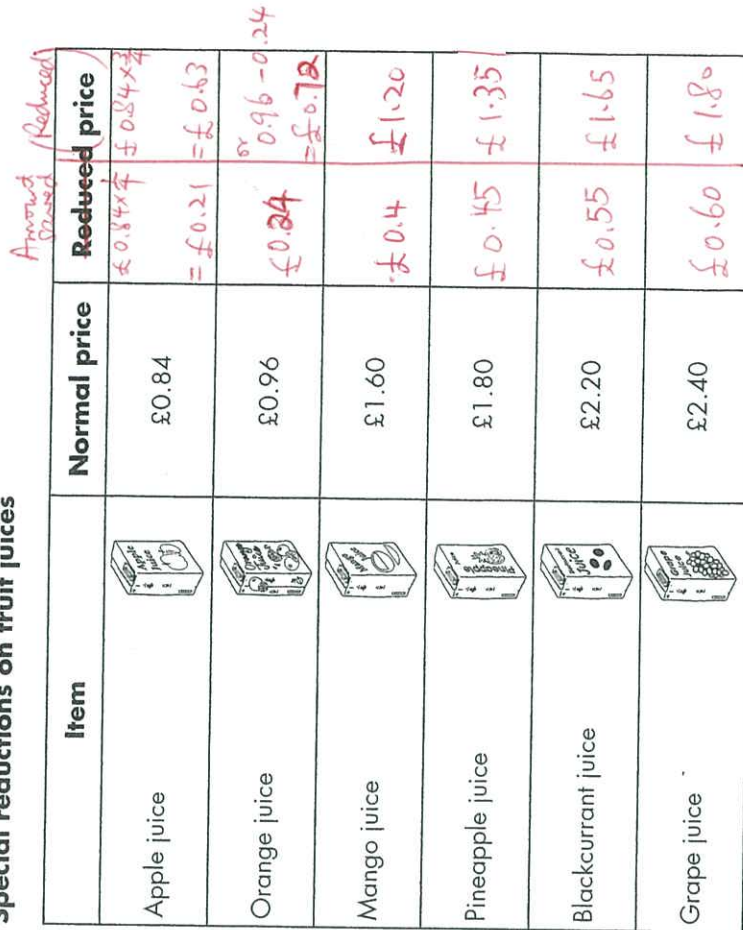 Special reductions on fruit juices
Amount saved (Reduced)
Item Normal price Reduced price
Apple juice £0.84 £0.84×¼ £0.84×¾
= £0.21 = £0.63
Orange juice £0.96 £0.24 or 0.96-0.24
= £0.72
Mango juice £1.60 £0.4 £1.20
Pineapple juice £1.80 £0.45 £1.35
Blackcurrant juice £2.20 £0.55 £1.65
Grape juice £2.40 £0.60 £1.80
Apple juice
Mango juice
Pineapple
Juice
Grape juice